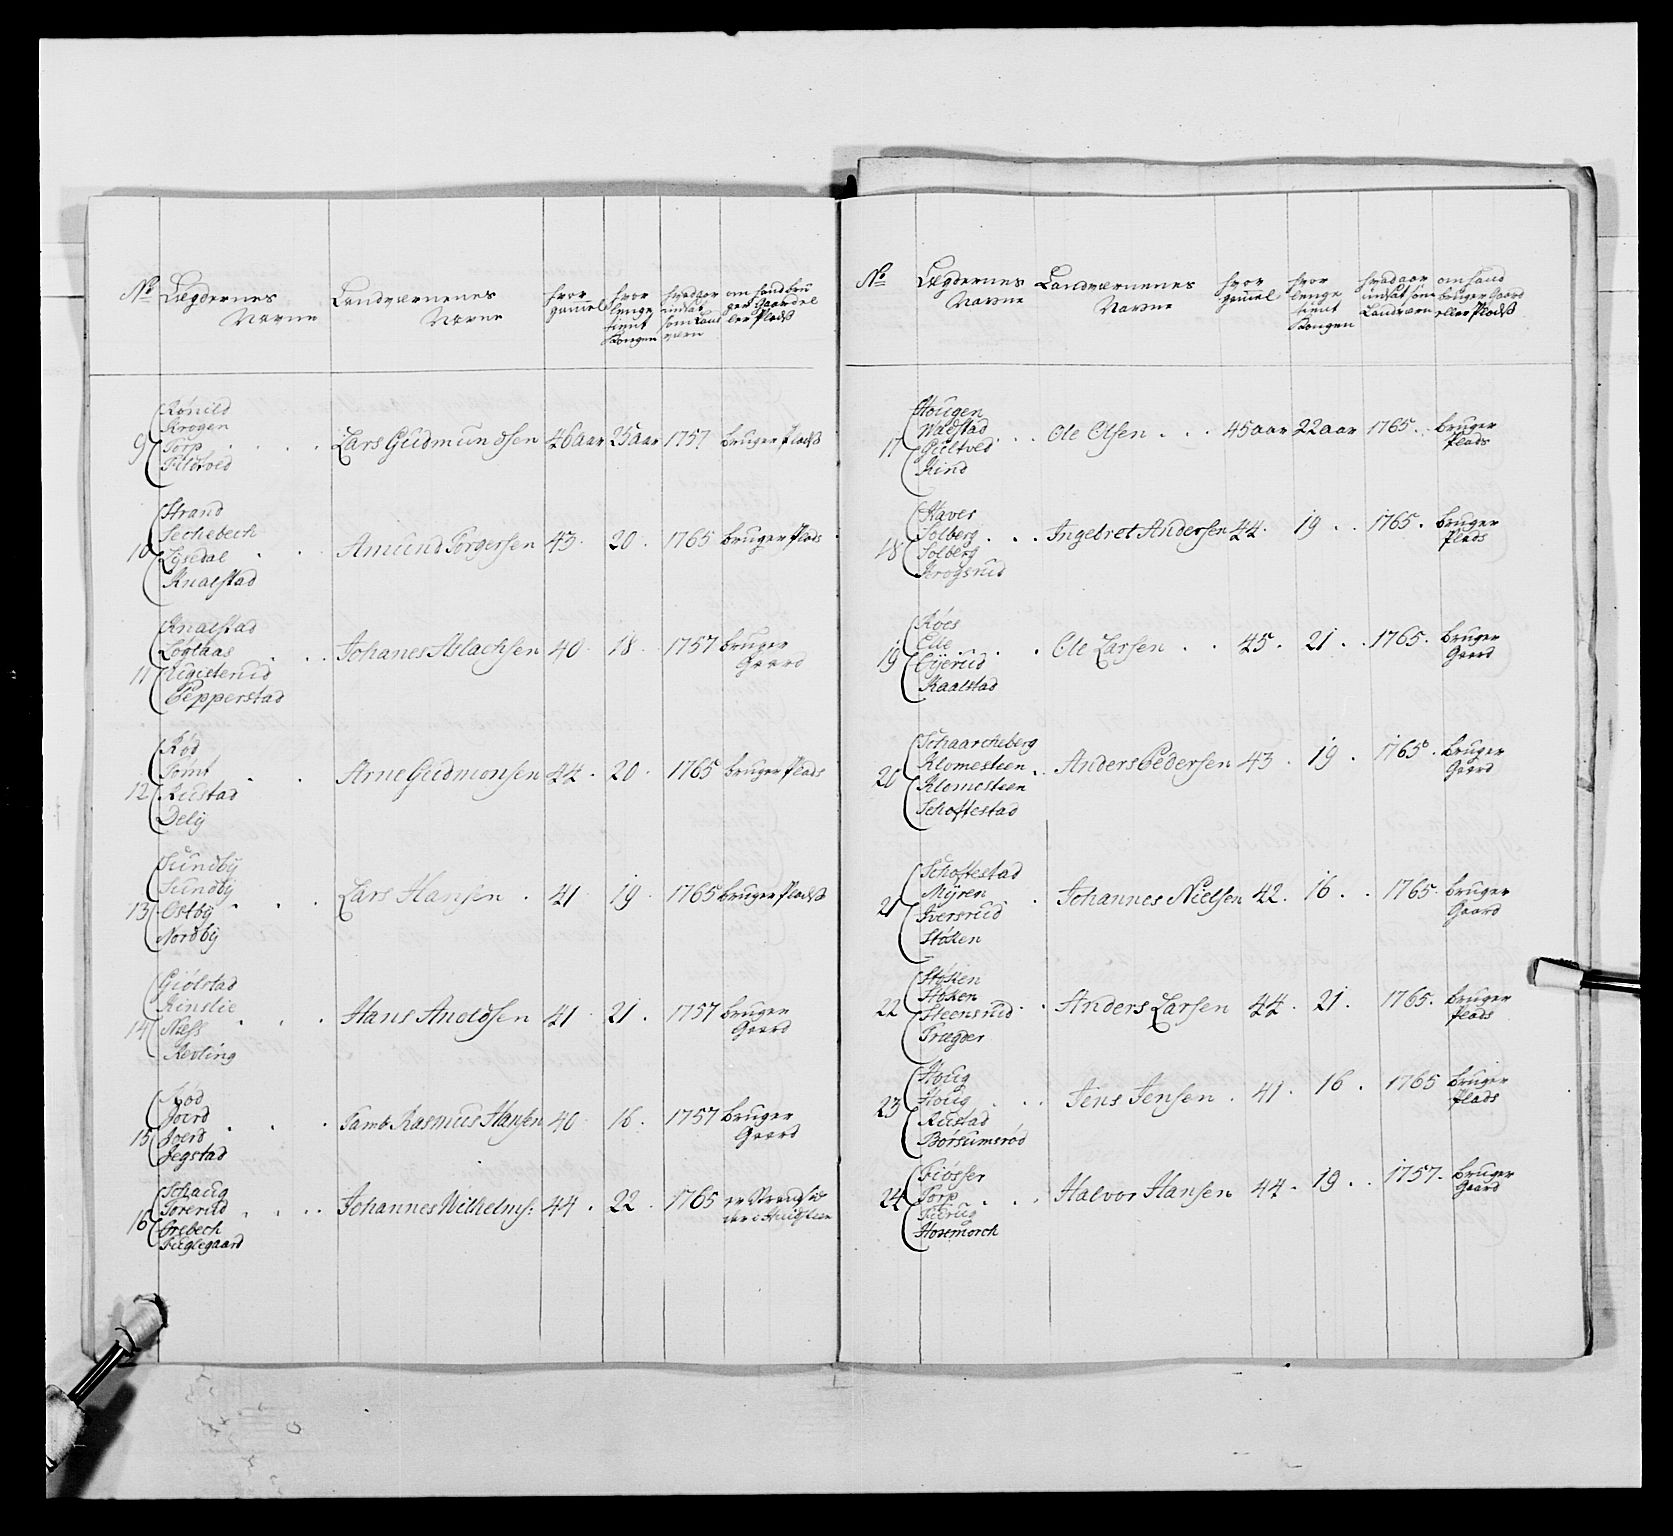 No Lægdernes Navne
Landværnenes Navne
hvor gamel
hvor lenge tient Kongen
hvad aar indsat som Land værn
om hand bruger Gaard eller Pladß
9 Rønild
Krogen
Torp
Lars Gudmundsen 46 aar 25 aar 1757 bruger Pladß
10 Strand
Sechebech
Lysedal
Knalstad
Amund Torgersen 43 20 1765 bruger Plads
11 Knalstad
Pepperstad
Johanes Aslachsen 40 18 1757 bruger Gaard
12 Rød
Tomt
Rustad
Dely
Arne Gudmonsen 44 20 1765 bruger Plads
13 Sundby
Sundby
Ostby
Nordby
Lars Hansen 41 19 1765 bruger Pladß
14 Giolstad
Næss
Revling
Hans 41 21 1757 bruger Gaard
15 Rød
Joerd
Joerd
Jegstad
Tamb. Rasmus Hansen 40 16 1757 bruger Gaard
16 Schaug
Torerud
Grebech
Fuglegaard
Johannes Wilhelms: 44 22 1765
No Lægdernes Navne
Landværnenes Navne
hvor gamel
hvor lenge tient Kongen
hvad aar indsat som Landværn
om hand bruger Gaard eller Pladß
17 Hougen
Wadstad
Gultved
Kind
Ole Olsen 45 aar 22 aar 1765 bruger Plads
18 Haver
Solberg
Solberg
Krogsrud
Ingebret Andersen 44 19 1765 bruger Plads
19 Røes
Elle
Eyerud
Raalstad
Ole Larsen 45 21 1765 bruger Gaard
20 Schaarcheberg
Klomesteen
Klomesteen
Schoftestad
Anders Pedersen 43 19 1765 bruger Gaard
21 Schoftestad
Myren
Iversrud
Støken
Johannes Nielsen 42 16 1765 bruger Gaard
22 Støken
Støken
Steensrud
Trægder
Anders Larsen 44 21 1765 bruger Plads
23 Houg
Houg
Rustad
Børsumsrød
Jens Jensen 41 16 1765 bruger Plads
24 Fiosser
Torp
Furug
Horsmorch
Halvor Hansen 44 19 1757 bruger Gaard